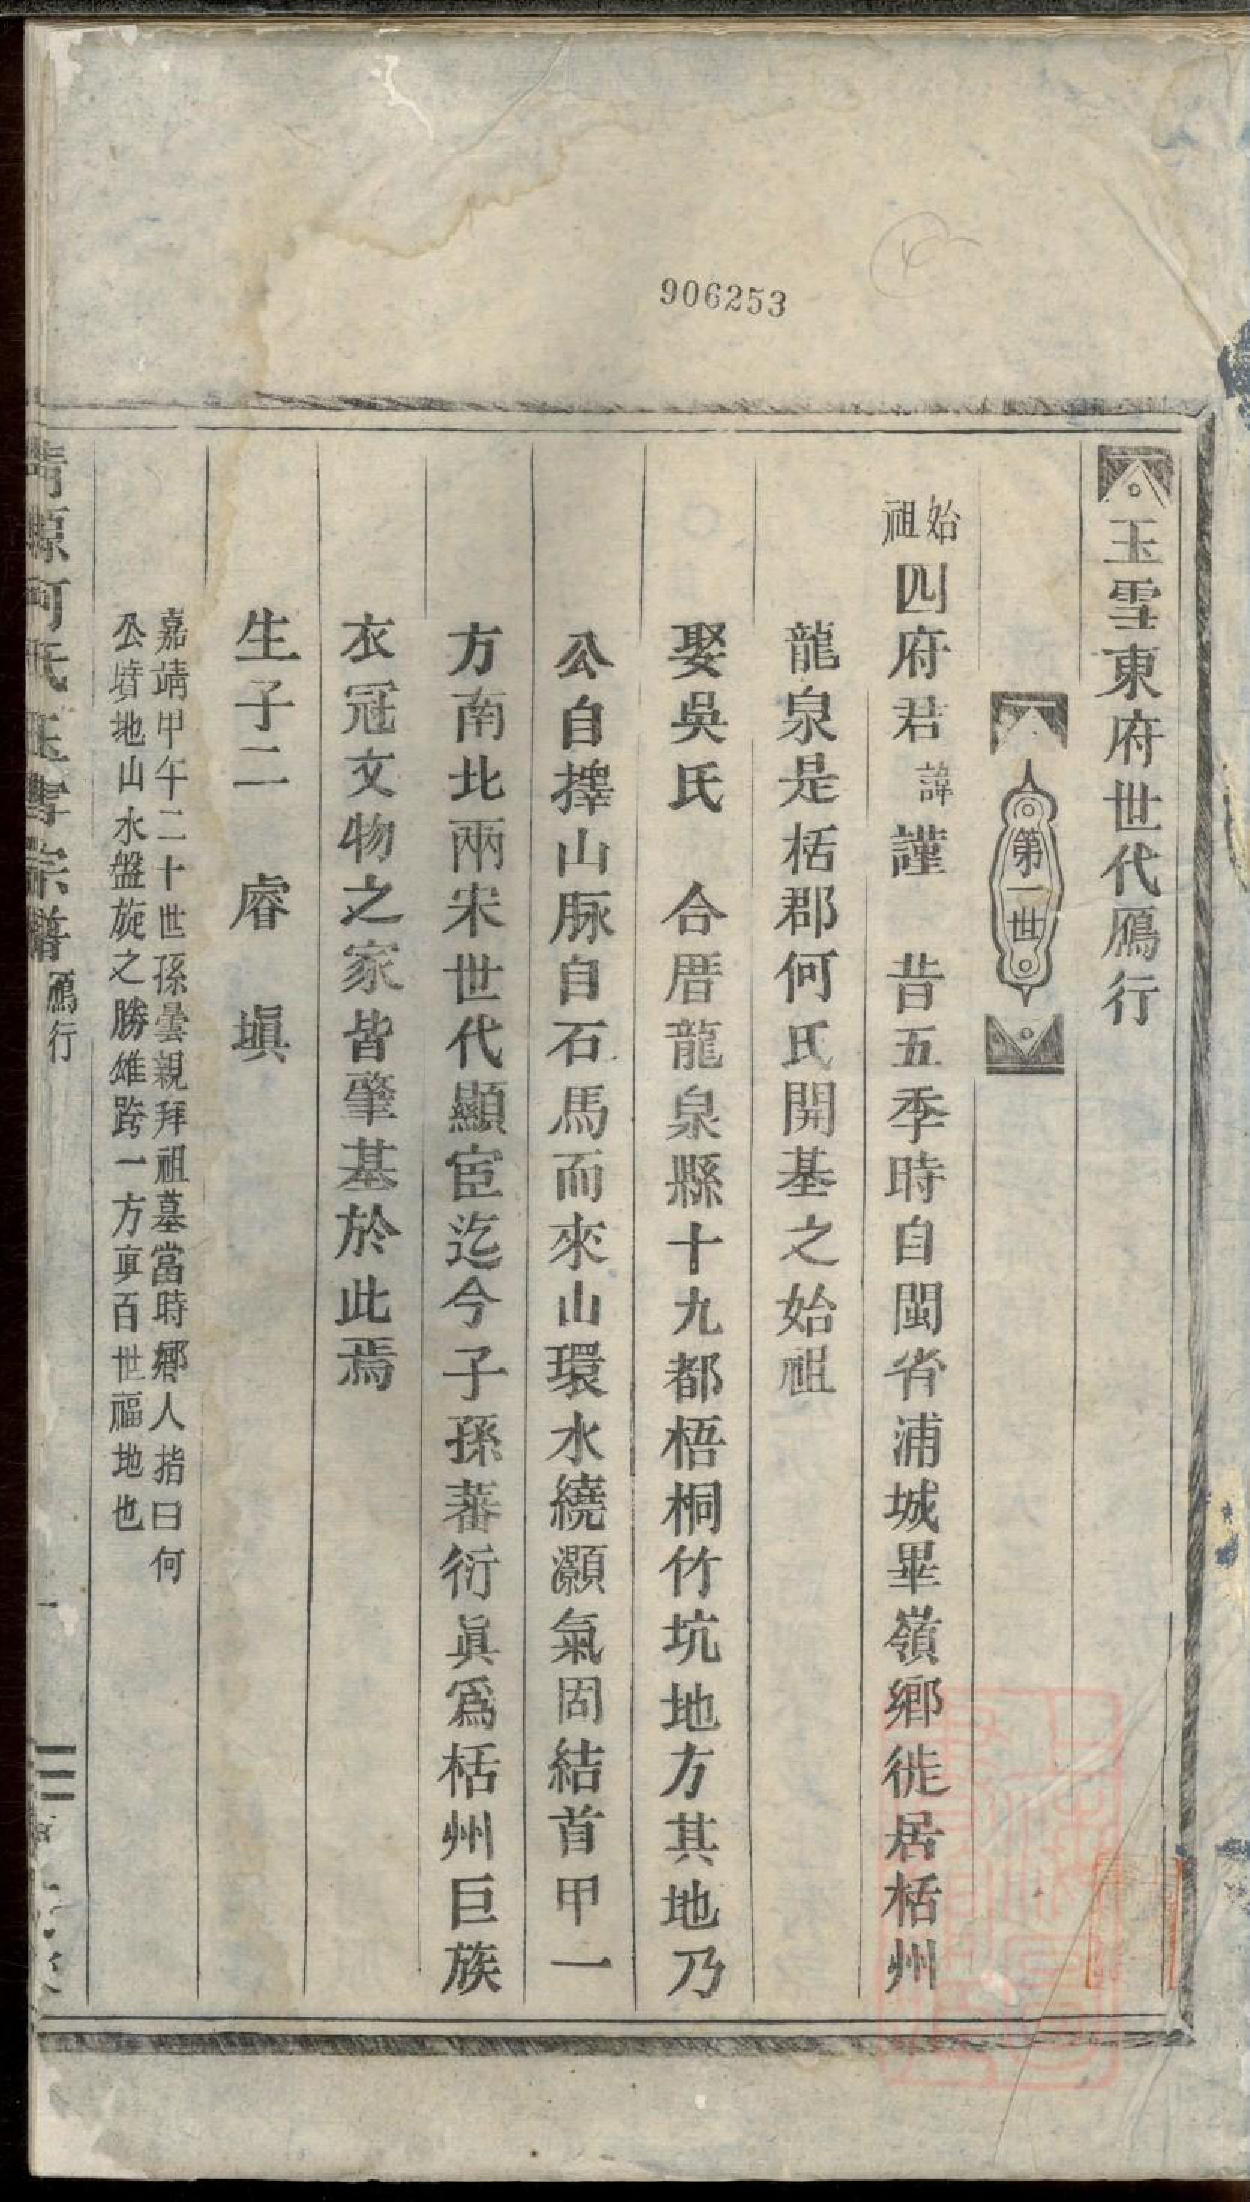 906253
玉雪東府世代鴈行
第一世
始祖四府君諱謹 昔五季時自閩省浦城畢嶺鄉徙居栝州
龍泉是栝郡何氏開基之始祖
娶吳氏 合厝龍泉縣十九都梧桐竹坑地方其地乃
公自擇山脉自石馬而來山環水繞灝氣固結首甲一
方南北兩宋世代顯宦迄今子孫蕃衍眞爲栝州巨族
衣冠文物之家皆肇基於此焉
生子二 睿 塡
嘉靖甲午二十世孫曇親拜祖墓當時鄉人指曰何
公墳地山水盤旋之勝雄跨一方眞百世福地也
何氏玉雪宗譜 鴈行 一